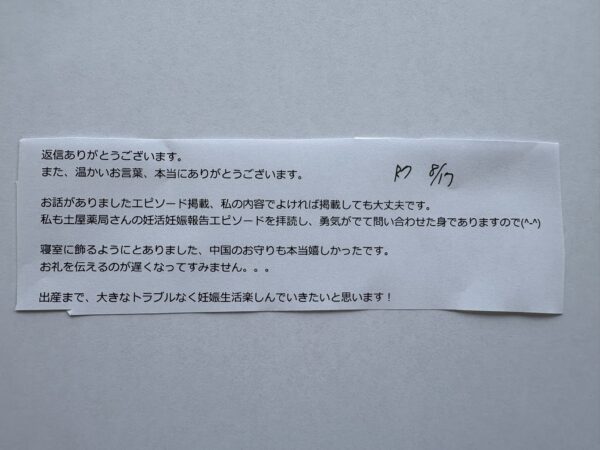 返信ありがとうございます。
また、温かいお言葉、本当にありがとうございます。
8/17
お話がありましたエピソード掲載、私の内容でよければ掲載しても大丈夫です。
私も土屋薬局さんの妊活妊娠報告エピソードを拝読し、勇気がでて問い合わせた身でありますので(^-^)
寝室に飾るようにとありました、中国のお守りも本当嬉しかったです。
お礼を伝えるのが遅くなってすみません。。。
出産まで、大きなトラブルなく妊娠生活楽しんでいきたいと思います！